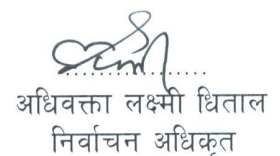 अधिवक्ता लक्ष्मी धिताल
निर्वाचन अधिकृत